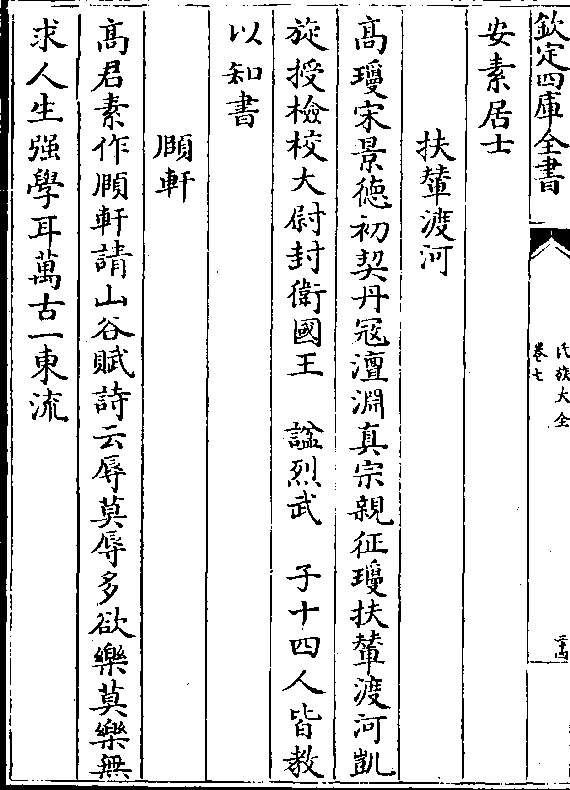 欽定四庫全書
氏族大全
卷七
安素居士
扶輦渡河
髙瓊宋景德初契丹冦澶淵真宗親征瓊扶輦渡河凱
旋授檢校大尉封衛國王 諡烈武 子十四人皆教
以知書
頤軒
髙君素作頤軒請山谷賦詩云辱莫辱多欲樂莫樂無
求人生强學耳萬古一東流